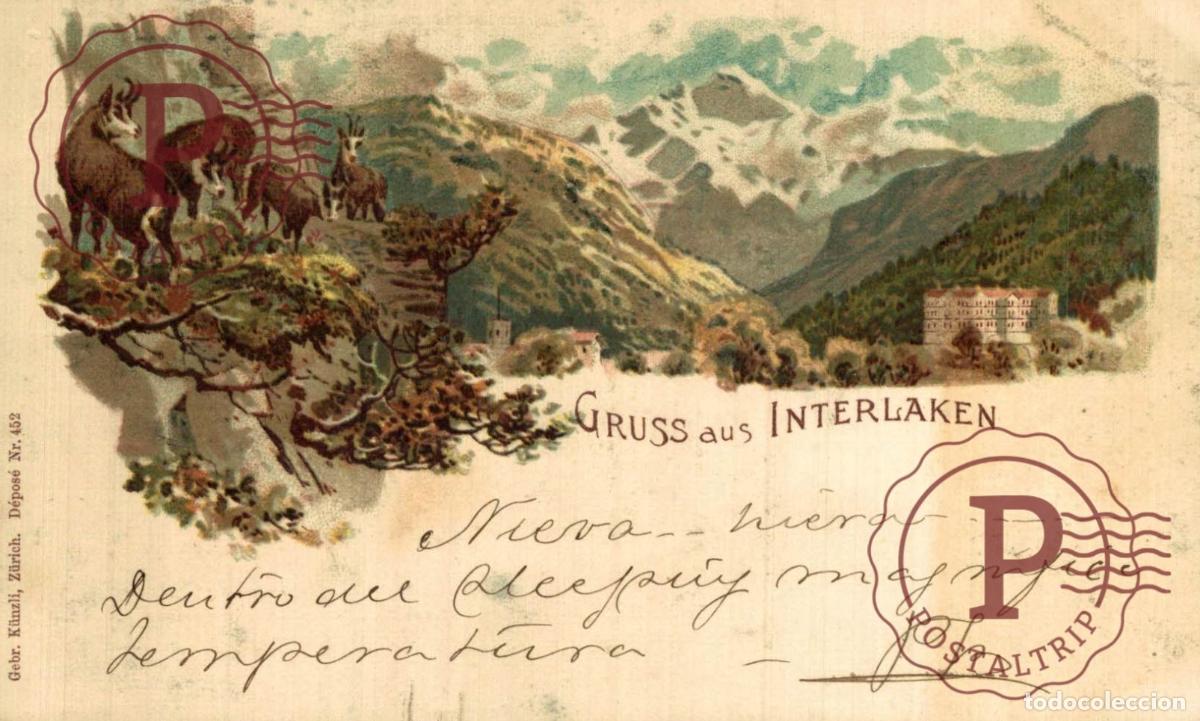 P
POSTALTRIP
GRUSS aus INTERLAKEN
Gebr. Künzli, Zürich. Déposé Nr. 452
Nieva -- hiera
Dentro del sleepuig magnifica
temperatura —
P
POSTALTRIP
todocoleccion